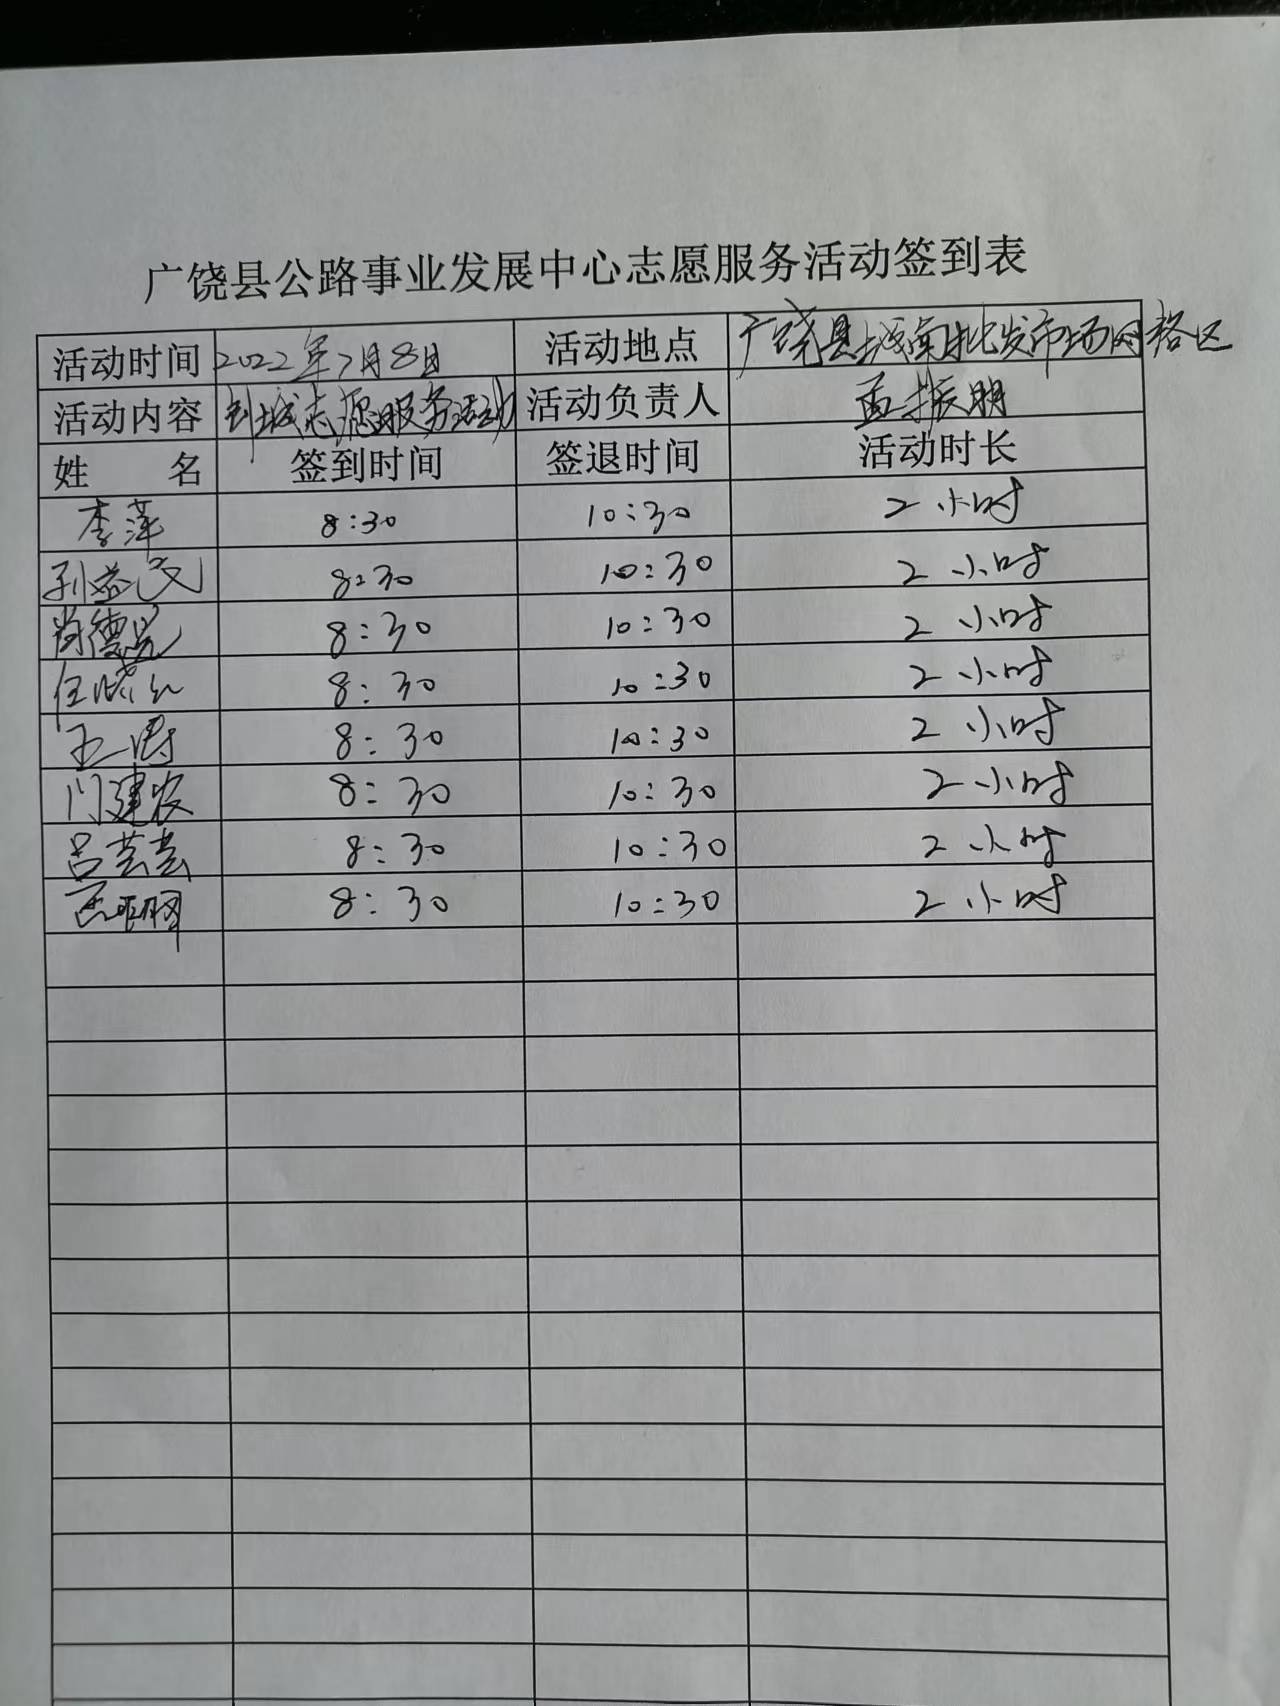 广饶县公路事业发展中心志愿服务活动签到表
活动时间 2022年7月8日 活动地点 广饶县城南批发市场网格区
活动内容 创城志愿服务活动 活动负责人 孟振明
姓 名 签到时间 签退时间 活动时长
李萍 8:30 10:30 2小时
孙益民 8:30 10:30 2小时
尚德光 8:30 10:30 2小时
任晓红 8:30 10:30 2小时
王涛 8:30 10:30 2小时
门建农 8:30 10:30 2小时
吕芸芸 8:30 10:30 2小时
8:30 10:30 2小时